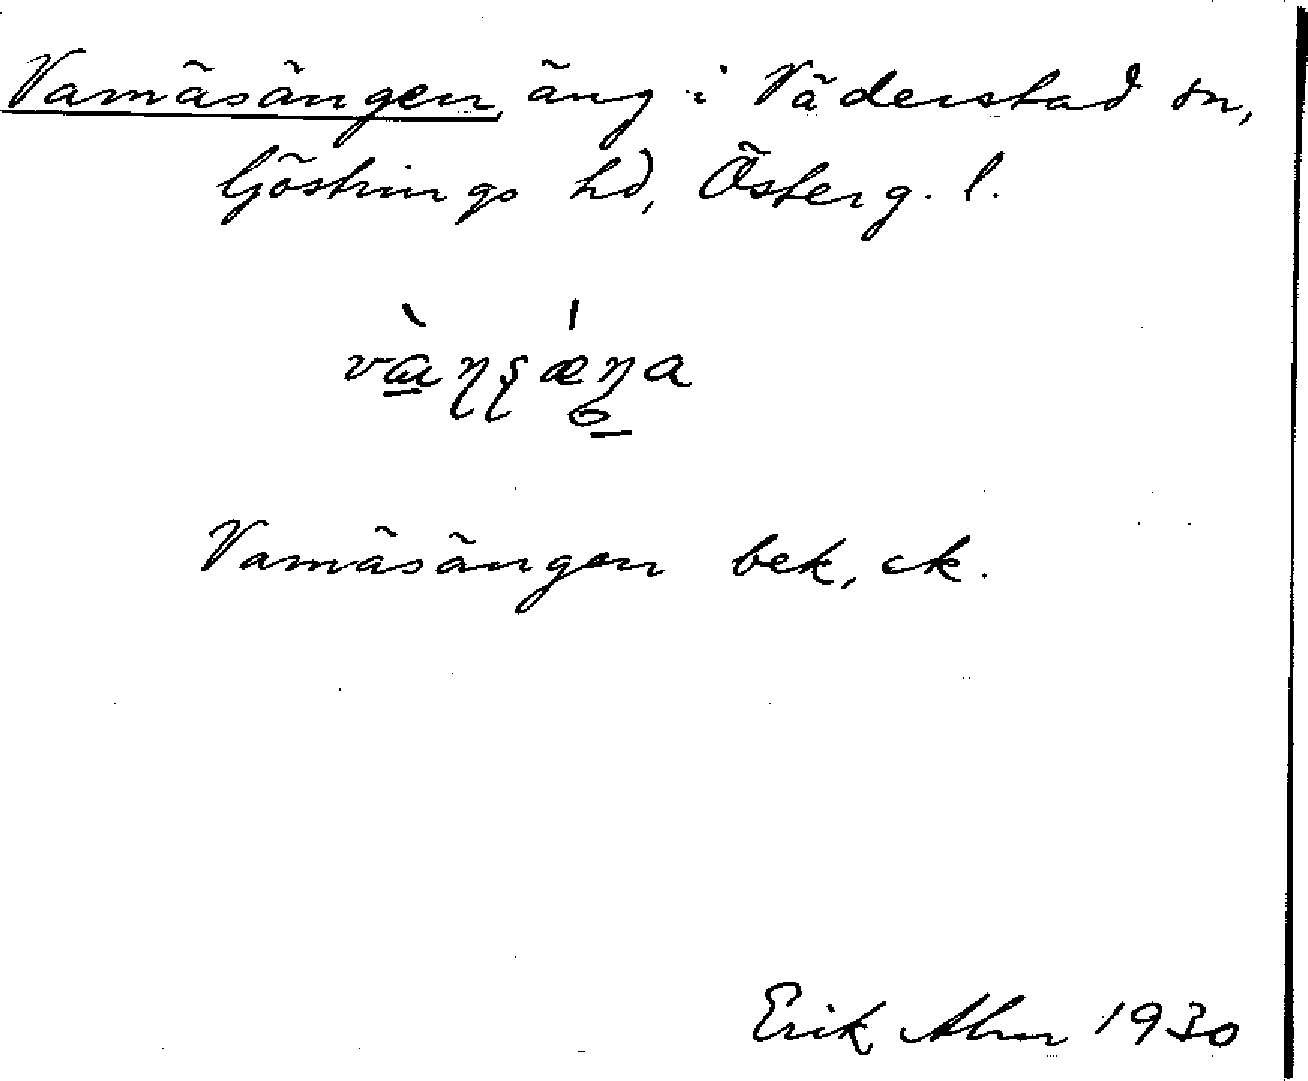 Vamäsängen, äng i Väderstad sn,
Göstrings hd, Österg. l.
Vamäsängen bek, ck.
Erik Abm 1930